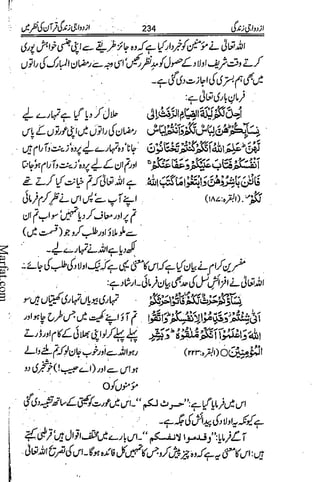 ازدواجی زندگی
234
ازدواجی زندگی قرآن کی نظر میں
اللہ تعالیٰ نے مؤمنین کو خبردار کیا ہے کہ وہ جائز طریقے سے اپنی جنسی خواہش پوری
کرتے وقت شریف اولاد کے حصول کو مدنظر رکھیں، اسی وجہ سے رمضان المبارک کی راتوں
میں بھی ہم بستری کی اجازت دی گئی ہے۔
فرمانِ باری تعالیٰ ہے:
اُحِلَّ لَكُمْ لَيْلَةَ الصِّيَامِ الرَّفَثُ اِلٰى
نِسَآئِكُمْ هُنَّ لِبَاسٌ لَّكُمْ وَاَنْتُمْ لِبَاسٌ
لَّهُنَّ عَلِمَ اللّٰهُ اَنَّكُمْ كُنْتُمْ تَخْتَانُوْنَ
اَنْفُسَكُمْ فَتَابَ عَلَيْكُمْ وَعَفَا عَنْكُمْ
فَالْـٰٔنَ بَاشِرُوْهُنَّ وَابْتَغُوْا مَا كَتَبَ اللّٰهُ
لَكُمْ (البقرہ:۱۸۷)
حلال کر دیا گیا ہے تمہارے لیے
رمضان کی راتوں میں اپنی عورتوں کے پاس
جانا، وہ تمہارے لیے پردہ، زینت و آرام ہیں
اور تم ان کے لیے پردہ، زینت و آرام ہو جانتا
ہے اللہ تعالیٰ کہ تم خیانت کیا کرتے تھے
اپنے آپ سے پس اس نے نظر کرم فرمائی
تم پر اور معاف کر دیا تمہیں سو اب تم ان
سے ملو ملاؤ اور طلب کرو جو (قسمت میں)
لکھ دیا ہے اللہ نے تمہارے لیے۔
مفسرین کرام نے بیان کیا ہے کہ اس کا معنی یہی ہے کہ نیک اولاد کی طلب کی جائے۔
اللہ تعالیٰ نے افزائش نسل کی حد بھی بیان فرمائی۔ ارشاد ہے:
نِسَآؤُكُمْ حَرْثٌ لَّكُمْ فَاْتُوْا حَرْثَكُمْ
اَنّٰى شِئْتُمْ وَقَدِّمُوْا لِاَنْفُسِكُمْ وَاتَّقُوا
اللّٰهَ وَاعْلَمُوْٓا اَنَّكُمْ مُّلٰقُوْهُ وَبَشِّرِ
الْمُؤْمِنِيْنَ ○ (البقرہ:۲۲۳)
تمہاری بیویاں تمہاری کھیتیاں ہیں سو
تم آؤ اپنے کھیت میں جس طرح چاہو اور
پہلے پہلے کر لو اپنی بھلائی کے کام اور ڈرتے
رہو اللہ سے اور خوب جان لو کہ تم ملنے والے
ہو اس سے اور (اے حبیب!) خوشخبری دو
مؤمنوں کو ○
اس میں فرمایا گیا ہے: "حرث لکم"۔ اس میں عورت کو کھیتی کے ساتھ تشبیہ دی گئی
ہے کیونکہ یہ اولاد کی پیدائش کی جگہ ہے۔
آگے فرمایا: "وقدموا لانفسکم"۔ اس بارے میں مختلف اقوال ہیں: قرطبی کہتے
ہیں: اس کا معنی یہ ہے کہ وہ چیز پیش کرو جس کا تمہیں کل فائدہ ہو گا۔ اس کی تصریح اللہ تعالیٰ
Marfat.com